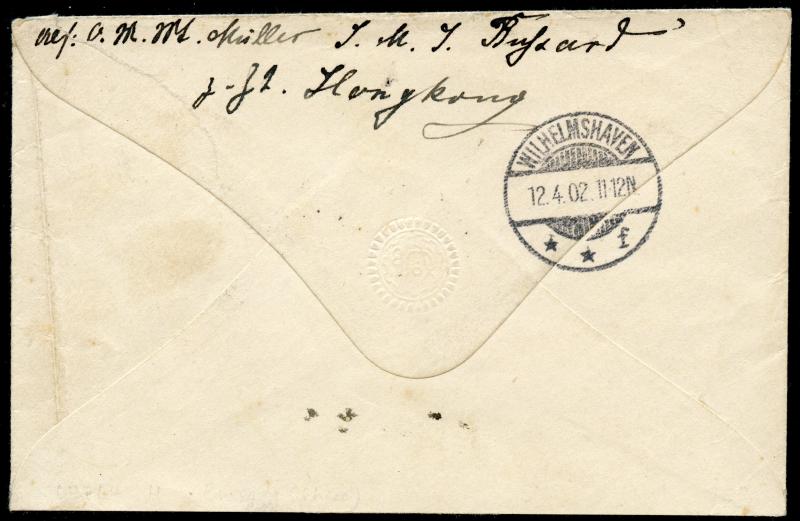 O. M. Mt. Müller S. M. S. Bussard
z. Zt. Hongkong
WILHELMSHAVEN
12.4.02.11-12N.
* * f